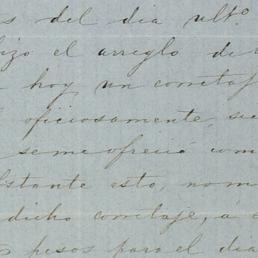 s del dia ulto
izo el arreglo de
hoy, un corretaj
oficiosamente, su
se me ofreció com
bstante esto, no m
dicho corretaje, a
pesos para el dia